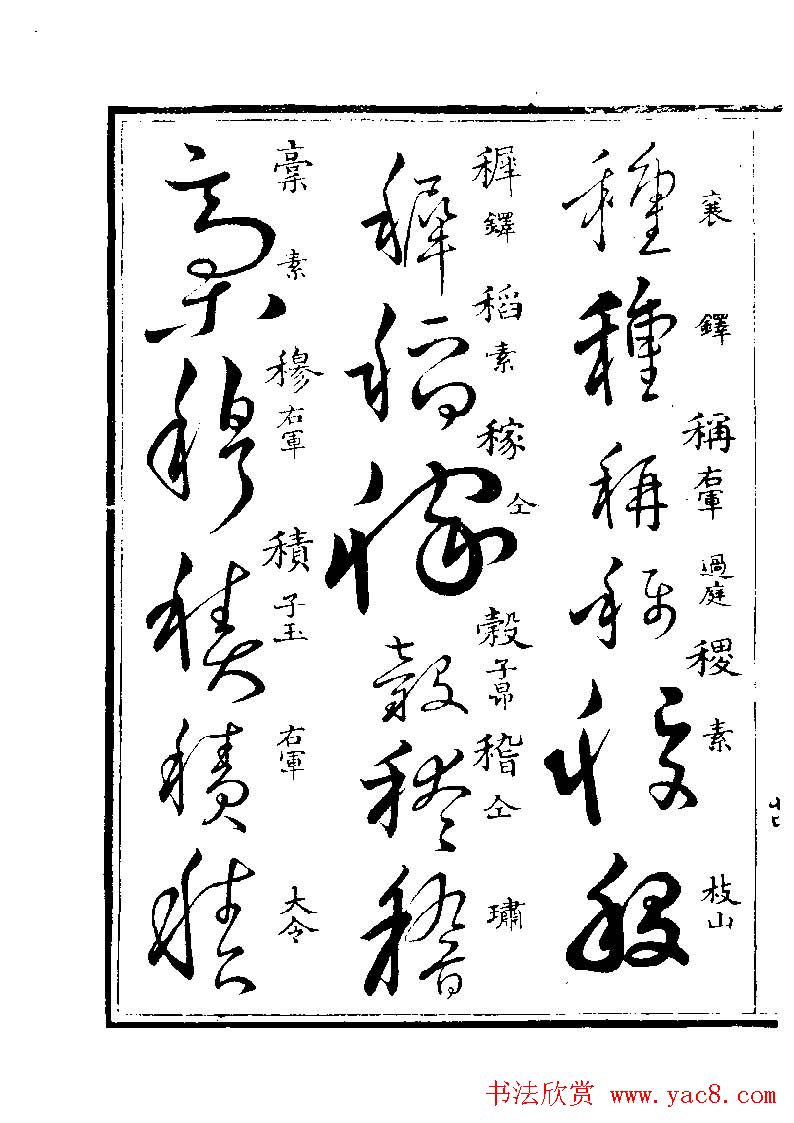 種 襄
種 鐸
稱 稱 右軍
稱 過庭
稷 稷 素
稷 枝山
穉 穉 鐸
稻 稻 素
稼 稼 仝
穀 穀 子昂
稽 稽 仝
稽 璛
稾 稾 素
穆 穆 右軍
積 積 子玉
積 右軍
積 大令
十七
书法欣赏 www.yac8.com